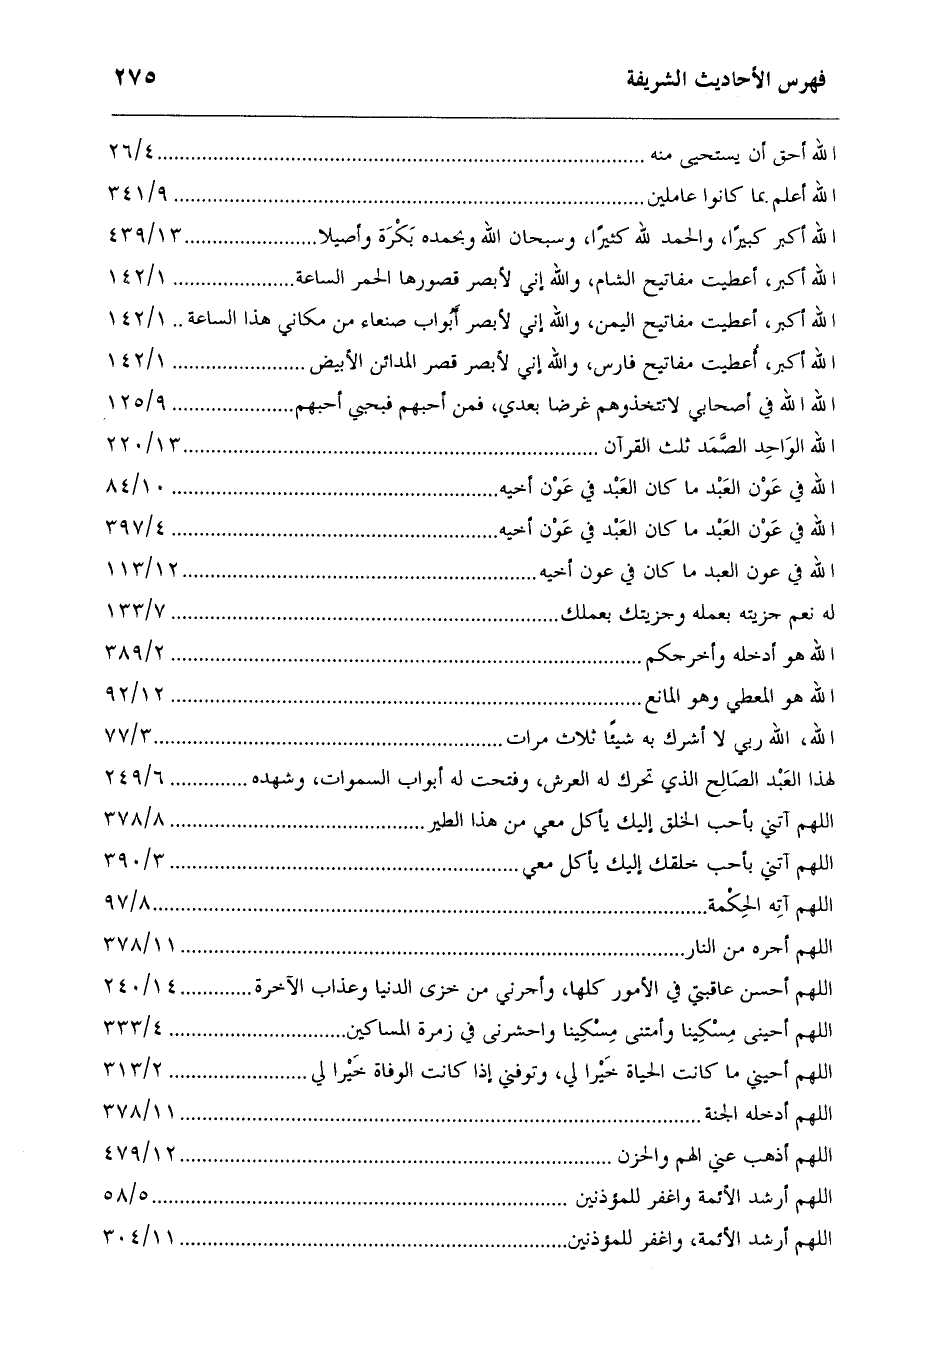 فهرس الأحاديث الشريفة ٢٧٥
الله أحق أن يستحيى منه ٢٦/٤
الله أعلم بما كانوا عاملين ٣٤١/٩
الله أكبر كبيرًا، والحمد لله كثيرًا، وسبحان الله وبحمده بَكْرَة وأصيلا ٤٣٩/١٣
الله أكبر، أعطيت مفاتيح الشام، والله إني لأبصر قصورها الحمر الساعة ١٤٢/١
الله أكبر، أعطيت مفاتيح اليمن، والله إني لأبصر أَبُواب صنعاء من مكاني هذا الساعة .. ١٤٢/١
الله أكبر، أُعطيت مفاتيح فارس، والله إني لأبصر قصر المدائن الأبيض ١٤٢/١
الله الله في أصحابي لاتتخذوهم غرضا بعدي، فمن أحبهم فبحبي أحبهم ١٢٥/٩
الله الوَاحِد الصَّمَد ثلث القرآن ٢٢٠/١٣
الله في عَوْن العَبْد ما كان العَبْد في عَوْن أخيه ٨٤/١٠
الله في عَوْن العَبْد ما كان العَبْد في عَوْن أخيه ٣٩٧/٤
الله في عون العبد ما كان في عون أخيه ١١٣/١٢
له نعم حزيته بعمله وحزيتك بعملك ١٣٣/٧
الله هو أدخله وأخرجكم ٣٨٩/٢
الله هو المعطي وهو المانع ٩٢/١٢
الله، الله ربي لا أشرك به شيئًا ثلاث مرات ٧٧/٣
لهذا العَبْد الصَالِح الذي تحرك له العرش، وفتحت له أبواب السموات، وشهده ٢٤٩/٦
اللهم آتني بأحب الخلق إليك يأكل معي من هذا الطير ٣٧٨/٨
اللهم آتني بأحب خلقك إليك يأكل معي ٣٩٠/٣
اللهم آتِه الحِكْمة ٩٧/٨
اللهم أحره من النار ٣٧٨/١١
اللهم أحسن عاقبتي في الأمور كلها، وأحرني من خزى الدنيا وعذاب الآخرة ٢٤٠/١٤
اللهم أحينى مِسْكِينا وأمتنى مِسْكِينا واحشرنى في زمرة المساكين ٣٣٣/٤
اللهم أحيني ما كانت الحياة خَيْرا لي، وتوفني إذا كانت الوفاة خَيْرا لي ٣١٣/٢
اللهم أدخله الجنة ٣٧٨/١١
اللهم أذهب عني الهم والحزن ٤٧٩/١٢
اللهم أرشد الأئمة واغفر للمؤذنين ٥٨/٥
اللهم أرشد الأئمة، واغفر للمؤذنين ٣٠٤/١١